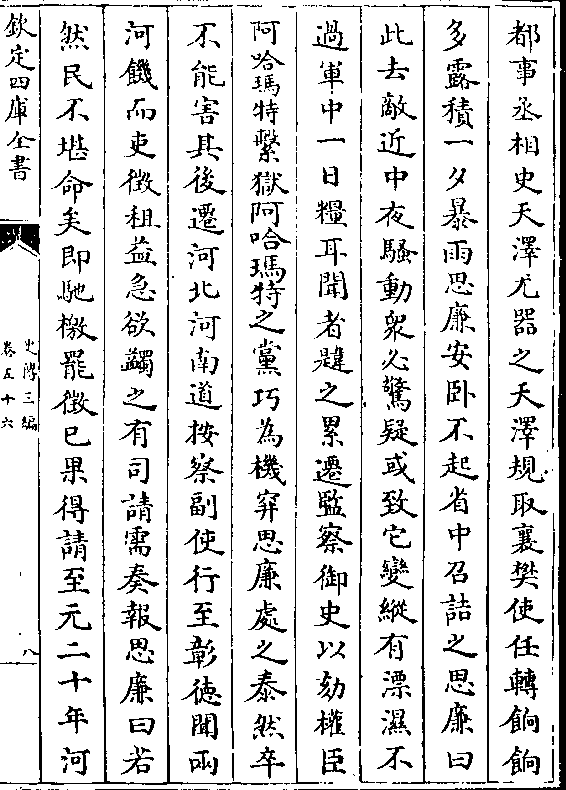 都事丞相史天澤尤器之天澤規取襄樊使任轉餉餉
多露積一夕暴雨思廉安卧不起省中召詰之思廉曰
此去敵近中夜騷動衆必驚疑或致它變縱有漂濕不
過軍中一日糧耳聞者韙之累遷監察御史以劾權臣
阿哈瑪特繫獄阿哈瑪特之黨巧為機穽思廉處之泰然卒
不能害其後遷河北河南道按察副使行至彰徳聞兩
河饑而吏徴租益急欲蠲之有司請需奏報思廉曰若
然民不堪命矣即馳檄罷徴已果得請至元二十年河
欽定四庫全書
史傳三編
卷五十六
八